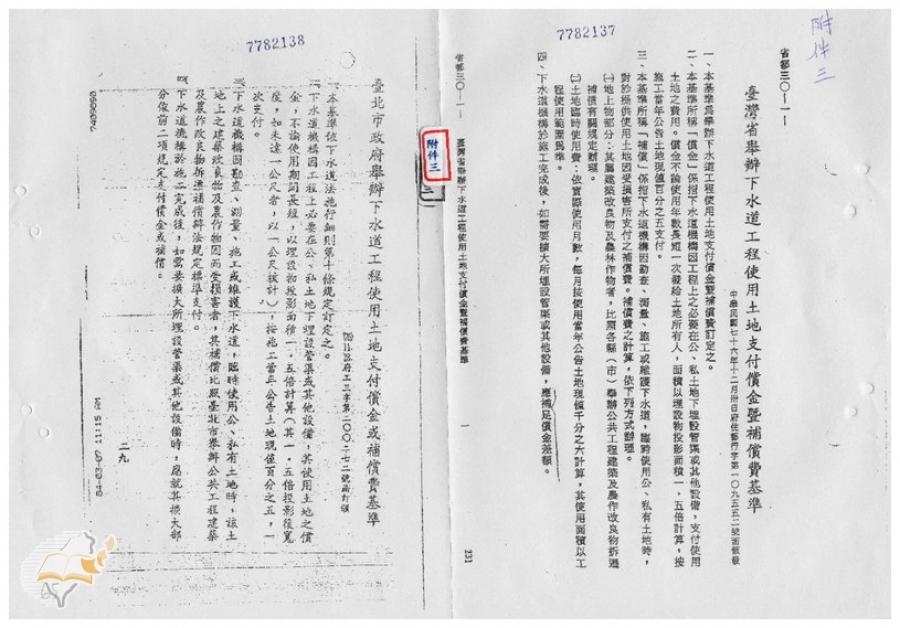 附件三
7782137
省都三〇-一
臺灣省舉辦下水道工程使用土地支付償金暨補償費基準
一、本基準為舉辦下水道工程使用土地支付償金暨補償費訂定之。
二、本基準所稱「償金」係指下水道機構因工程上之必要在公、私土地下埋設管渠或其他設備,支付使用
土地之費用。償金不論使用年數長短一次發給土地所有人,面積以埋設物投影面積一.五倍計算,按
施工當年公告土地現值百分之五支付。
三、本基準所稱「補償」係指下水道機構因勘查、測量、施工或維護下水道,臨時使用公、私有土地時,
對於提供使用土地因受損害所支付之補償費。補償費之計算,依下列方式辦理。
㈠地上物部分:其屬建築改良物及農林作物者,比照各縣(市)舉辦公共工程建築及農作改良物拆遷
補償有關規定辦理。
㈡土地臨時使用費:依實際使用月數,每月按使用當年公告土地現值千分之六計算,其使用面積以工
程使用範圍為準。
四、下水道機構於施工完成後,如需要擴大所埋設管渠或其他設備,應補足償金差額。
省都三〇-一
臺灣省舉辦下水道工程使用土地支付償金暨補償費基準
一
231
附件三
7782138
臺北市政府舉辦下水道工程使用土地支付償金或補償費基準
一、本基準依下水道法施行細則第十條規定訂定之。
二、下水道機構因工程上必要在公、私土地下埋設管渠或其他設備,其使用土地之償
金,不論使用期間長短,以埋設物投影面積一.五倍計算(其一.五倍投影後寬
度,如未達一公尺者,以一公尺核計),按施工當年公告土地現值百分之五,一
次支付。
三、下水道機構因勘查、測量、施工或維護下水道,臨時使用公、私有土地時,該土
地上之建築改良物及農作物因而受損害者,其補償比照臺北市舉辦公共工程建築
及農作改良物拆遷補償辦法規定標準支付。
四、下水道機構於施工完成後,如需要擴大所埋設管渠或其他設備時,應就其擴大部
分依前二項規定支付償金或補償。
二九